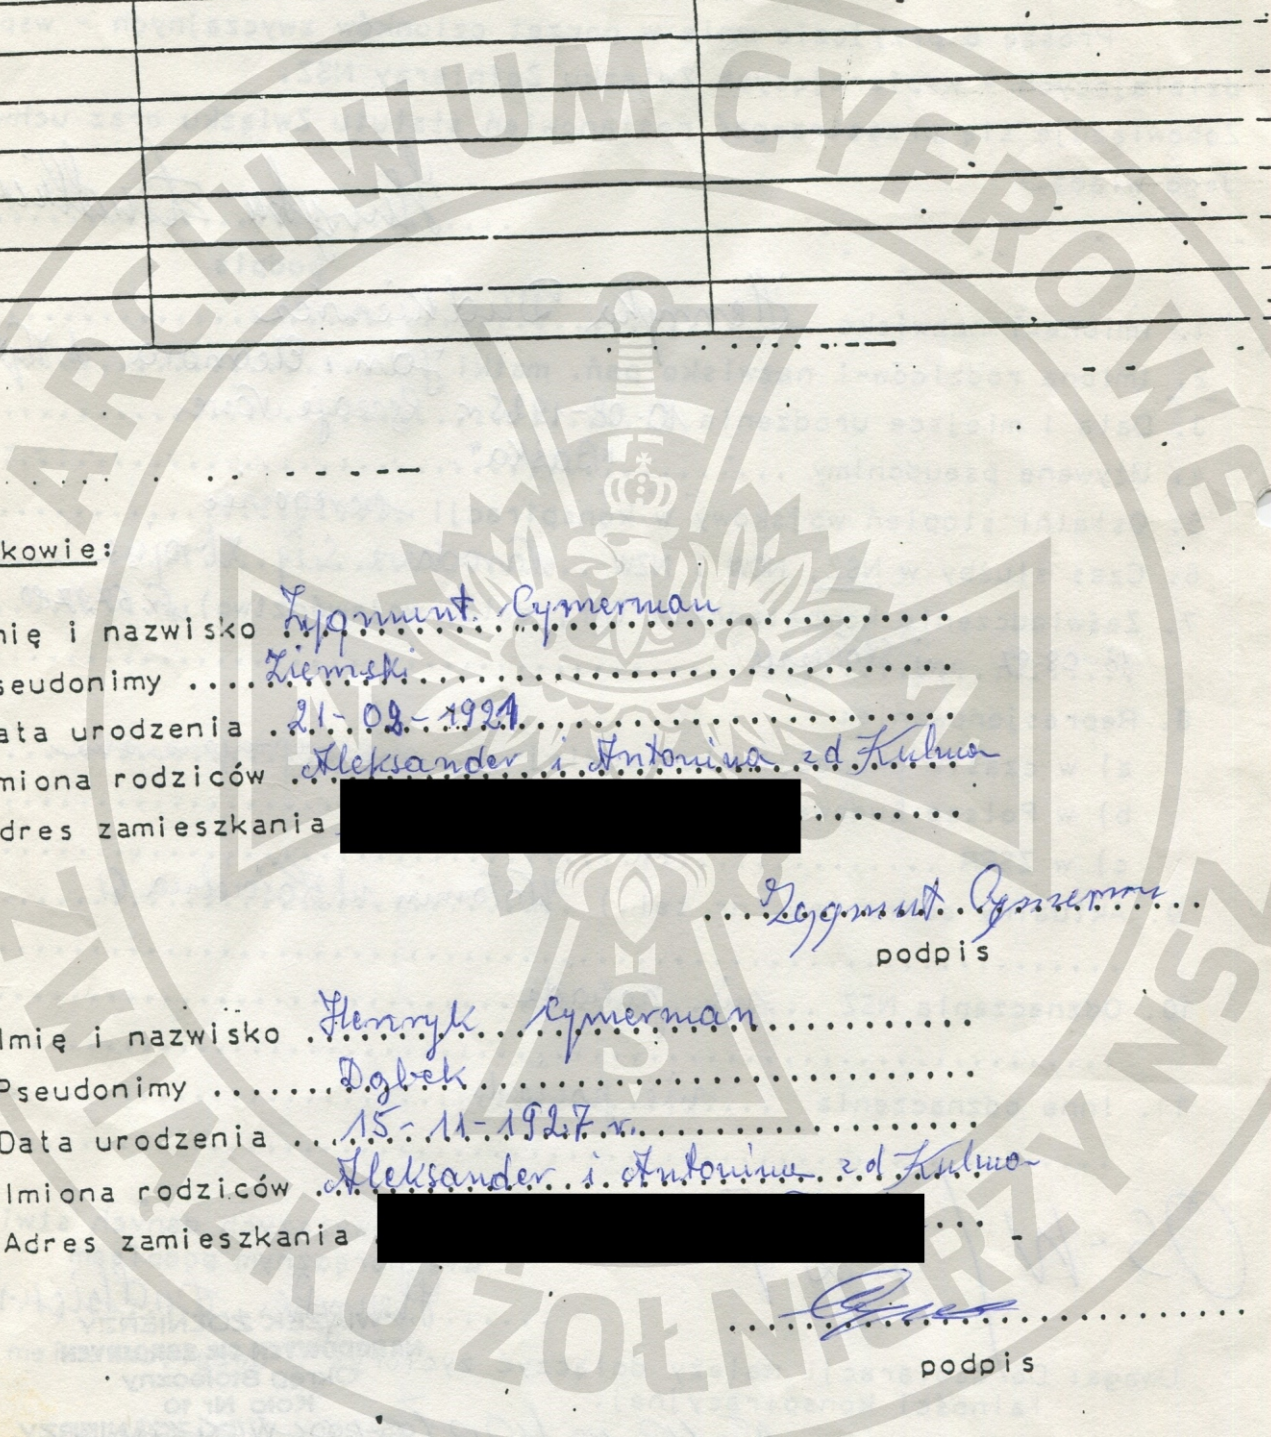 ARCHIWUM CYFROWE
ZWIĄZKU ŻOŁNIERZY NSZ
N Z
S
kowie:
nię i nazwisko Zygmunt Cymerman
seudonimy Ziemski
ata urodzenia 21-02-1921
miona rodziców Aleksander i Antonina zd Kulma
dres zamieszkania
Zygmunt Cymerman
podpis
Imię i nazwisko Henryk Cymerman
Pseudonimy Dąbek
Data urodzenia 15-11-1927 r.
Imiona rodziców Aleksander i Antonina zd Kulma
Adres zamieszkania
podpis